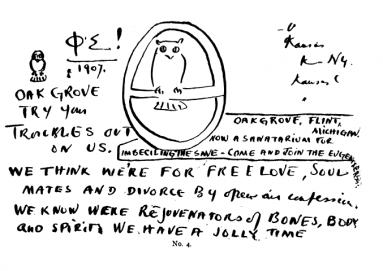 ΦΣ!
1907.
OAK GROVE
TRY YOUR
TROUBLES OUT
ON US.
Kansas
K- NY.
Kansas C
OAKGROVE, FLINT,
MICHIGAN.
NOW A SANATARIUM FOR
IMBECILING THE SANE - COME AND JOIN THE
WE THINK WE'RE FOR FREE LOVE, SOUL
MATES AND DIVORCE By open air confession.
WE KNOW WERE REJUVENATORS of BONES, BODY
and SPIRITS WE HAVE A JOLLY TIME
No. 4.